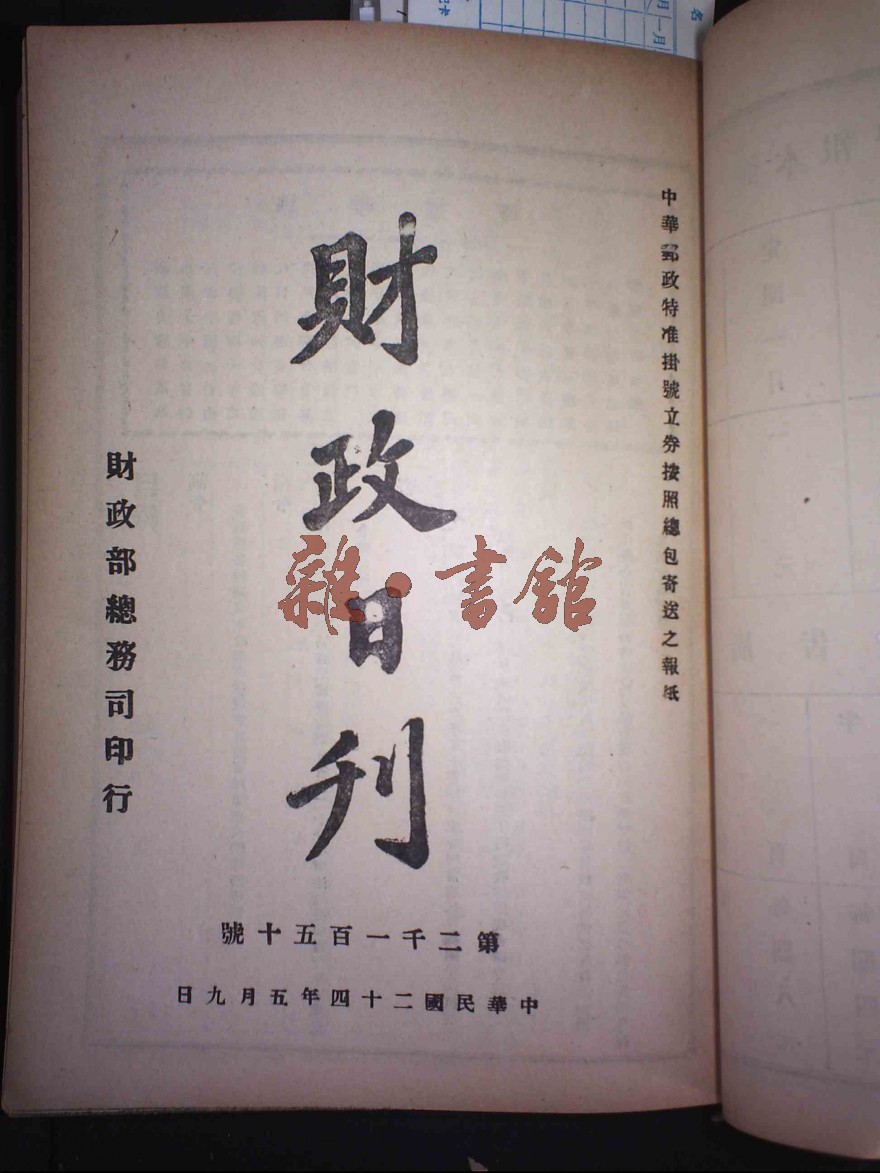 中華郵政特准掛號立券按照總包寄送之報紙
財政日刊
雜·書館
財政部總務司印行
第二千一百五十號
中華民國二十四年五月九日
名
月一月